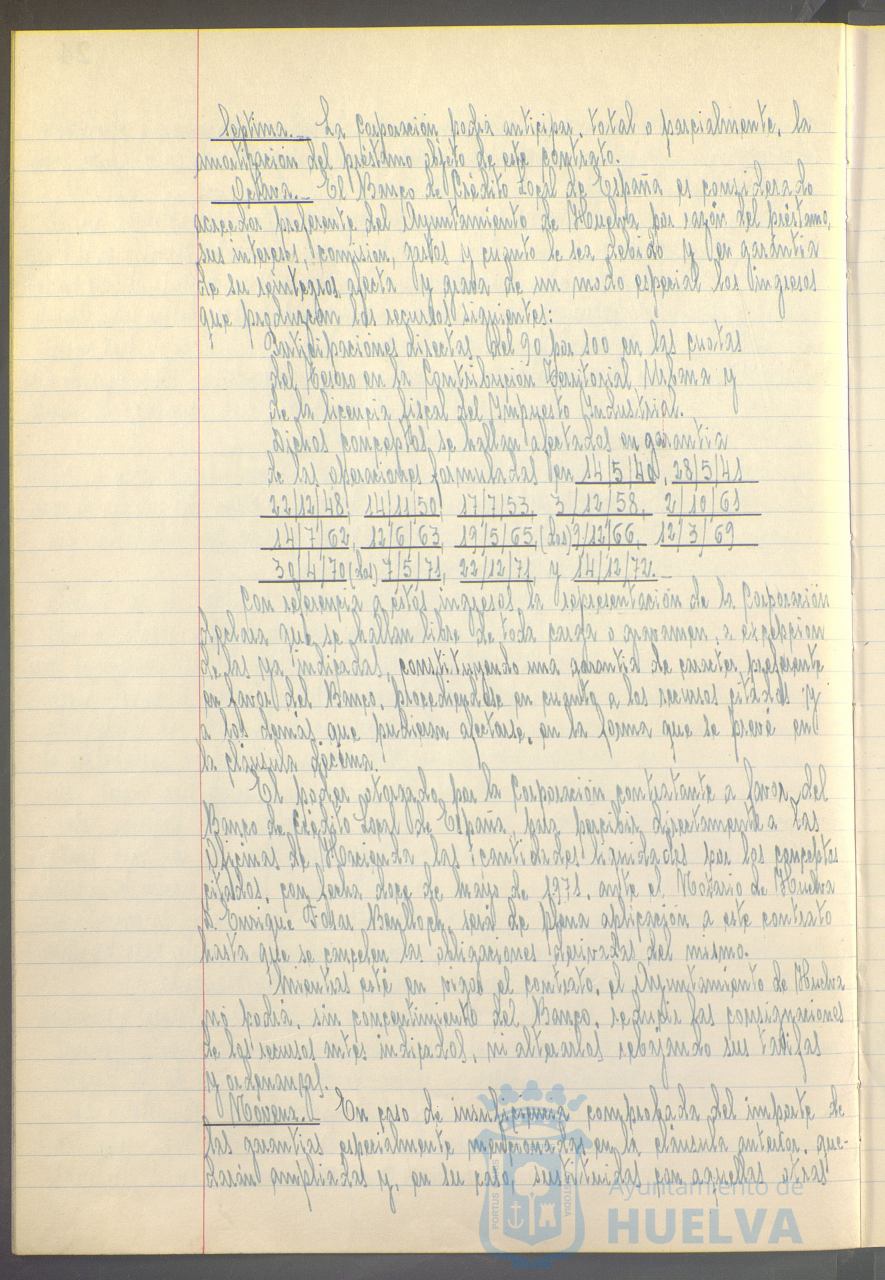 Séptima.- La Corporación podrá anticipar, total o parcialmente, la
amortización del préstamo objeto de este contrato.
Octava.- El Banco de Crédito Local de España es considerado
acreedor preferente del Ayuntamiento de Huelva por razón del préstamo,
sus intereses, comisión, gastos y cuanto le sea debido y en garantía
de su reintegro, afecta y grava de un modo especial los ingresos
que produzcan los recursos siguientes:
Participaciones directas del 90 por 100 en las cuotas
del Tesoro en la Contribución Territorial Urbana y
de la licencia fiscal del Impuesto Industrial.
Dichos conceptos se hallan afectados en garantía
de las operaciones formuladas en 14/5/40, 28/5/41
22/12/48, 14/11/50, 17/7/53, 3/12/58, 2/10/61
14/7/62, 12/6/63, 19/5/65, (dos) 9/12/66, 12/3/69
30/4/70 (dos) 7/5/71, 22/12/71, y 14/12/72.-
Con referencia a estos ingresos, la representación de la Corporación
declara que se hallan libre de toda carga o gravamen, a excepción
de las ya indicadas, constituyendo una garantía de carácter preferente
en favor del Banco, procediéndose en cuanto a los recursos citados y
a los demás que pudieran afectarse, en la forma que se prevé en
la cláusula décima.
El poder otorgado por la Corporación contratante a favor del
Banco de Crédito Local de España, para percibir directamente a las
Oficinas de Hacienda las cantidades liquidadas por los conceptos
citados, con fecha doce de mayo de 1971, ante el Notario de Huelva
D. Enrique Benlloch, será de plena aplicación a este contrato
hasta que se cancelen las obligaciones derivadas del mismo.
Mientras esté en vigor el contrato, el Ayuntamiento de Huelva
no podrá, sin concentimiento del Banco, reducir las consignaciones
de los recursos antes indicados, ni alterarlos rebajando sus tarifas
y ordenanzas.
Novena.- En caso de insuficiencia comprobada del importe de
las garantías especialmente mencionadas en la cláusula anterior, que-
darán ampliadas y, en su caso, sustituidas con aquellas otras
PORTUS
CUSTODIA
Ayuntamiento de
HUELVA